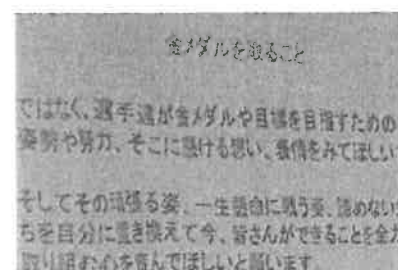 金メダルを取ること
ではなく、選手達が金メダルや目標を目指すための
姿勢や努力、そこに懸ける思い、表情をみてほしい
そしてその頑張る姿、一生懸命に戦う姿、諦めない
ちを自分に置き換えて今、皆さんができることを全力
取り組む心を育んでほしいと願います